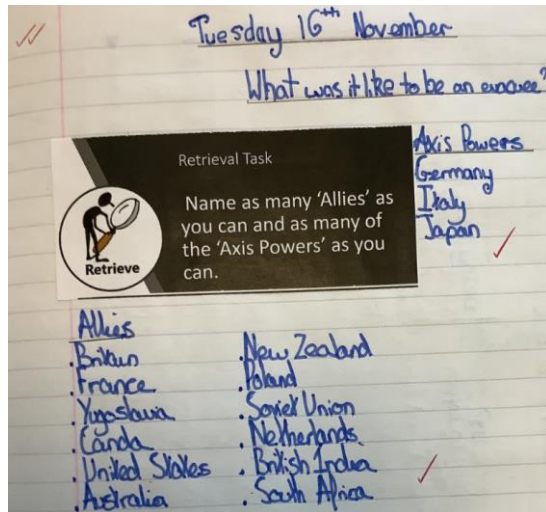 Tuesday 16th November
What was it like to be an evacuee?
Retrieval Task
Name as many 'Allies' as
you can and as many of
the 'Axis Powers' as you
can.
Retrieve
Axis Powers
Germany
Italy
Japan
Allies
. Britain
. France
. Yugoslavia
. Canda
. United States
. Australia
. New Zealand
. Poland
. Soviet Union
. Netherlands
. British India
. South Africa